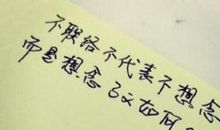 不联络不代表不想念
而是想念了又如何